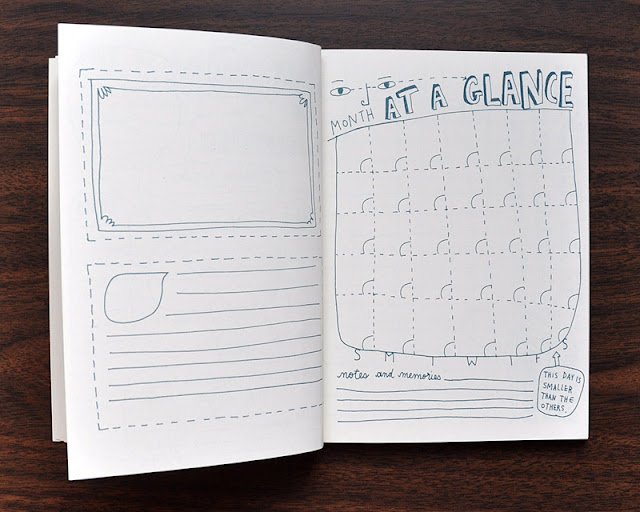 MONTH AT A GLANCE
S M T W T F S
notes and memories
THIS DAY IS
SMALLER
THAN THE
OTHERS.